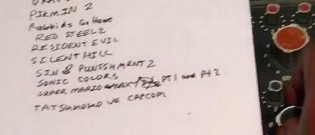 PIKMIN 2
Rabbids Go Home
RED STEEL 2
RESIDENT EVIL
SILENT HILL
SIN & PUNISHMENT 2
SONIC COLORS
SUPER MARIO PT 1 and PT 2
TATSUNOKO VS CAPCOM